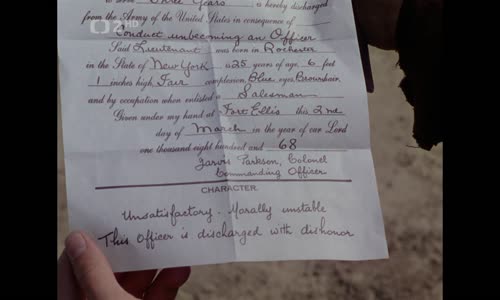 Three Years, is hereby discharged
from the Army of the United States in consequence of
Conduct unbecoming an Officer
Said Lieutenant was born in Rochester
in the State of New York is 25 years of age, 6 feet
1 inches high, Fair complexion, Blue eyes, Brown hair,
and by occupation when enlisted a Salesman
Given under my hand at Fort Ellis this 2nd
day of March in the year of our Lord
one thousand eight hundred and 68
Jarvis Parkson, Colonel
Commanding Officer
CHARACTER.
Unsatisfactory - Morally unstable
This Officer is discharged with dishonor
2 HD